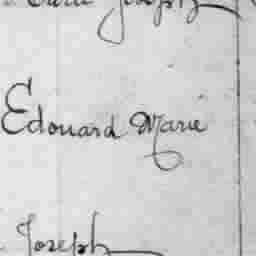 Joseph
Edouard Marie
Joseph